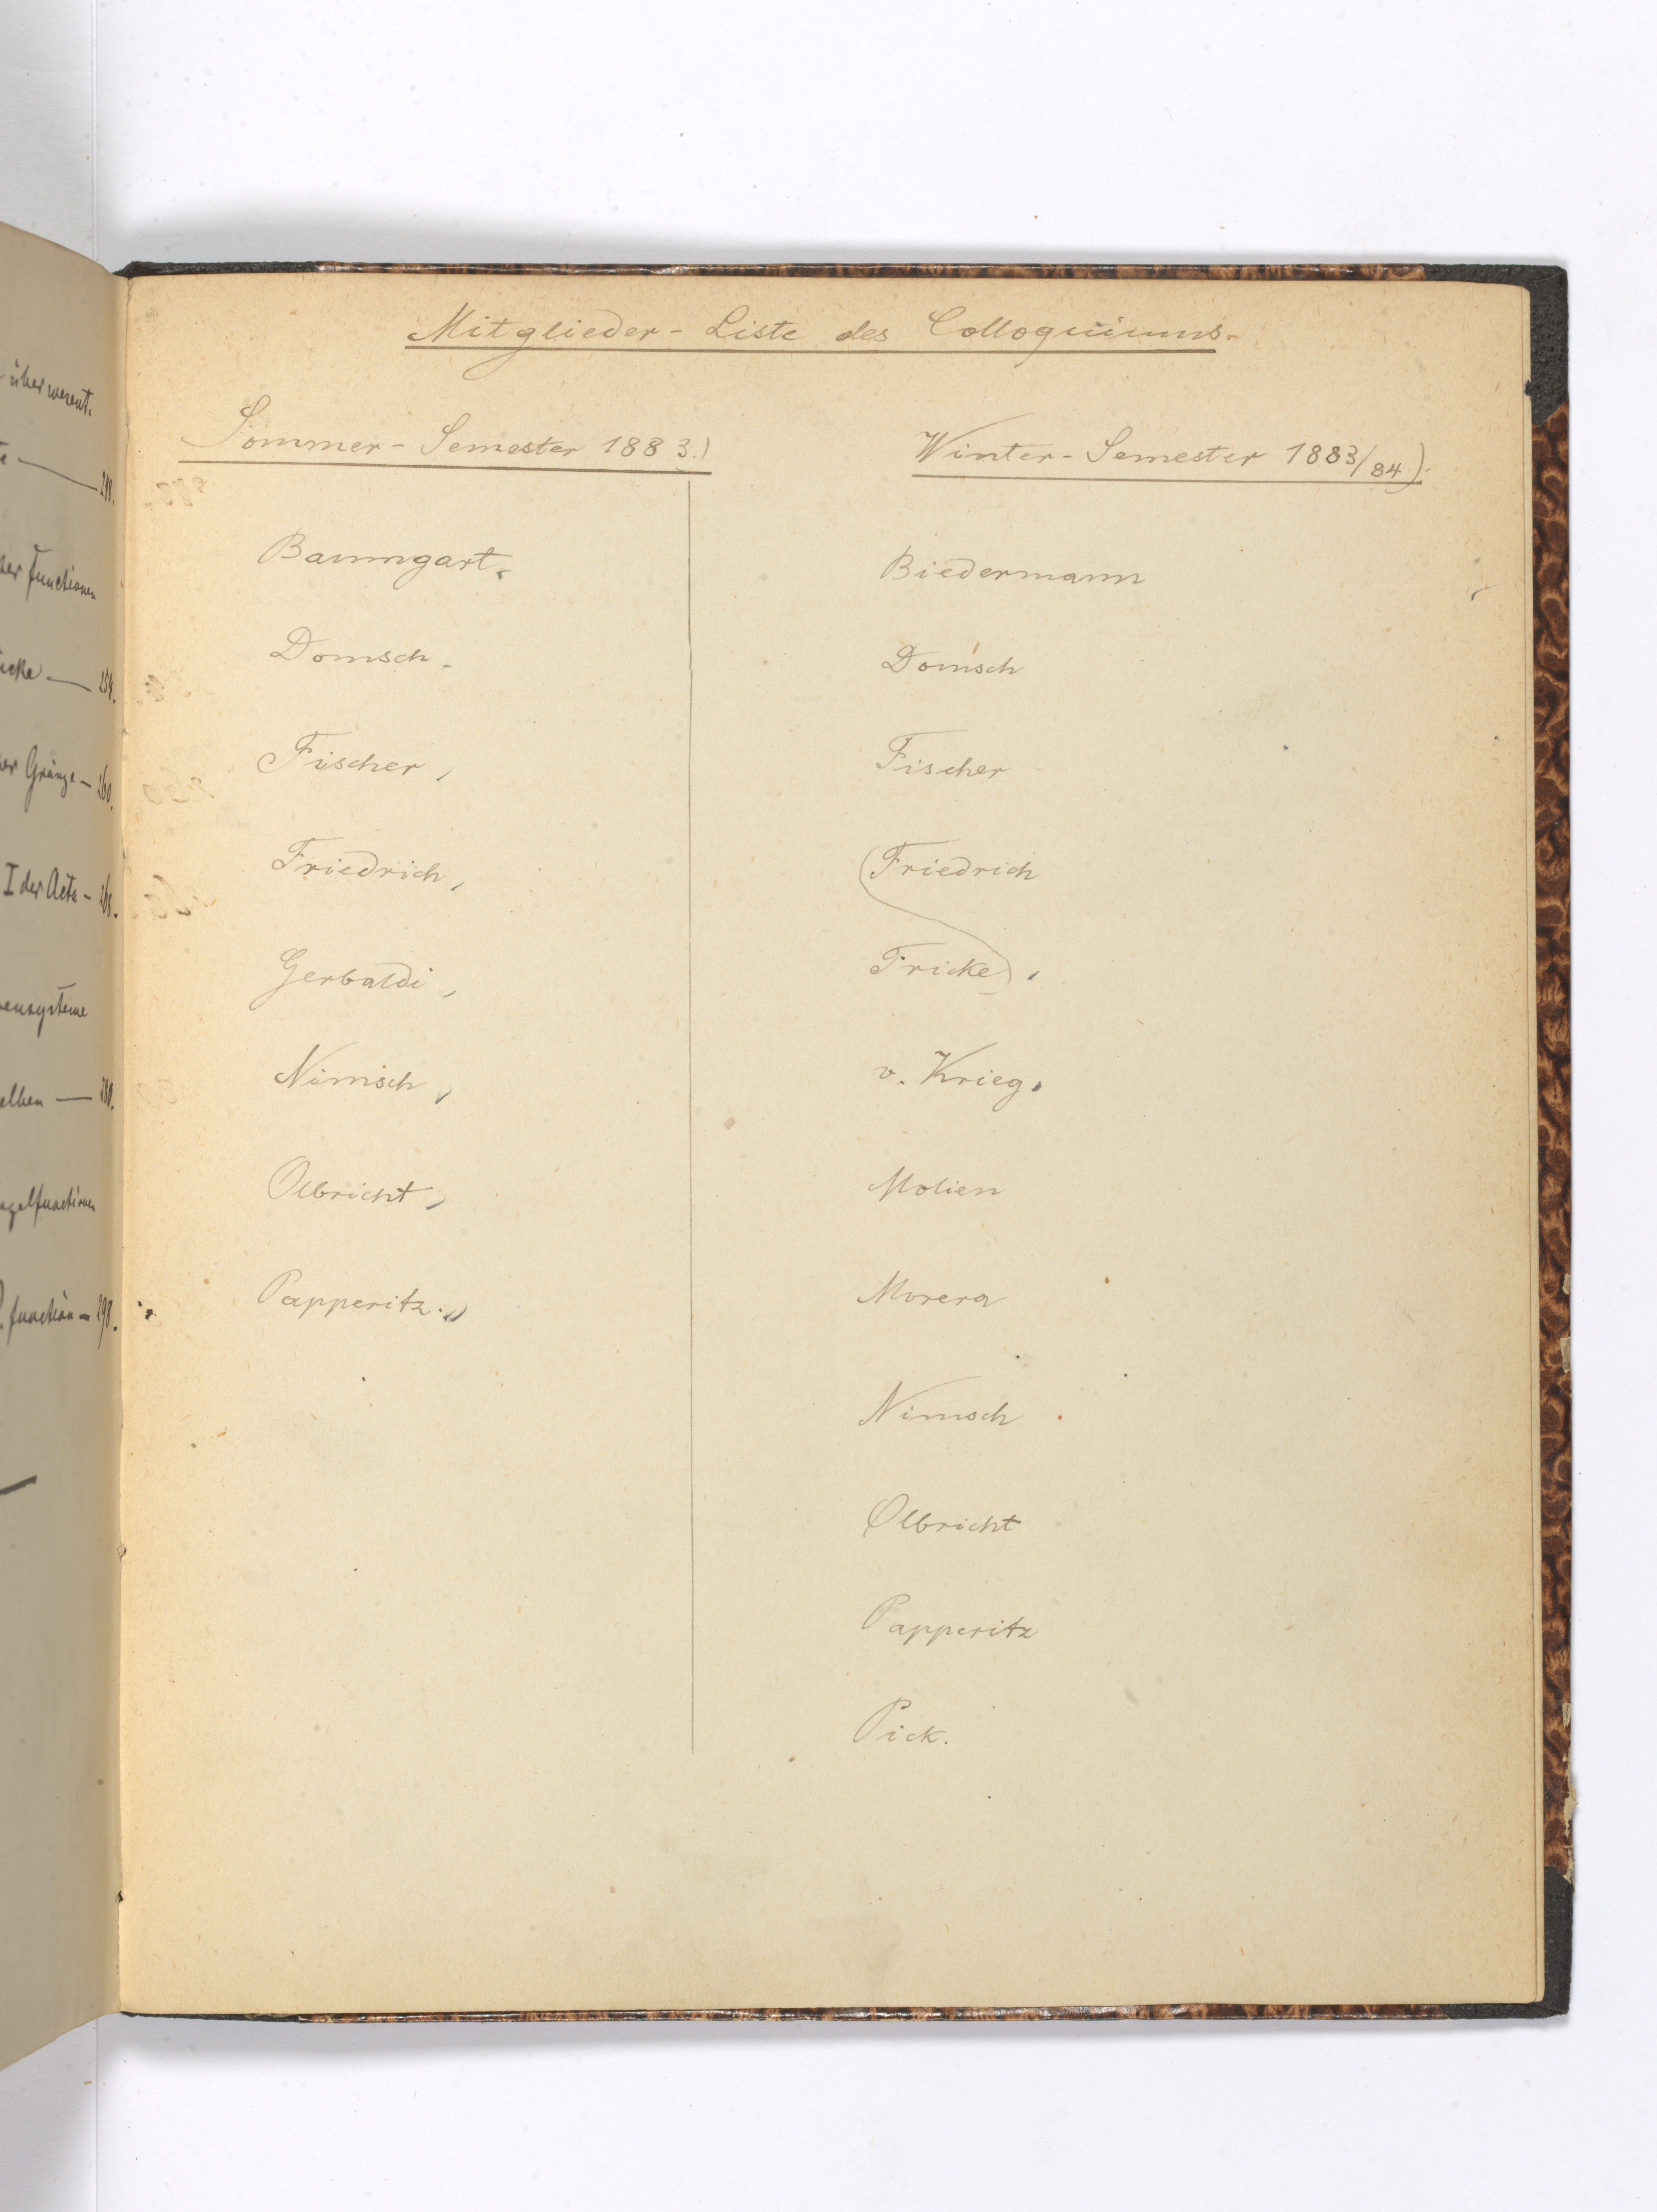 über wesent.
248.
Functionen
icke — 254.
Gränze — 260.
I der Acta — 268.
ensysteme
elben — 280.
gelfunctionen
function — 298.
Mitglieder - Liste des Colloquiums.
Sommer - Semester 1883.)
Baumgart.
Domsch.
Fischer,
Friedrich,
Gerbaldi,
Nimsch,
Olbricht,
Papperitz.,,
Winter - Semester 1883/84).
Biedermann
Domsch
Fischer
(Friedrich
Fricke),
v. Krieg.
Molien
Morera
Nimsch
Olbricht
Papperitz
Pick.